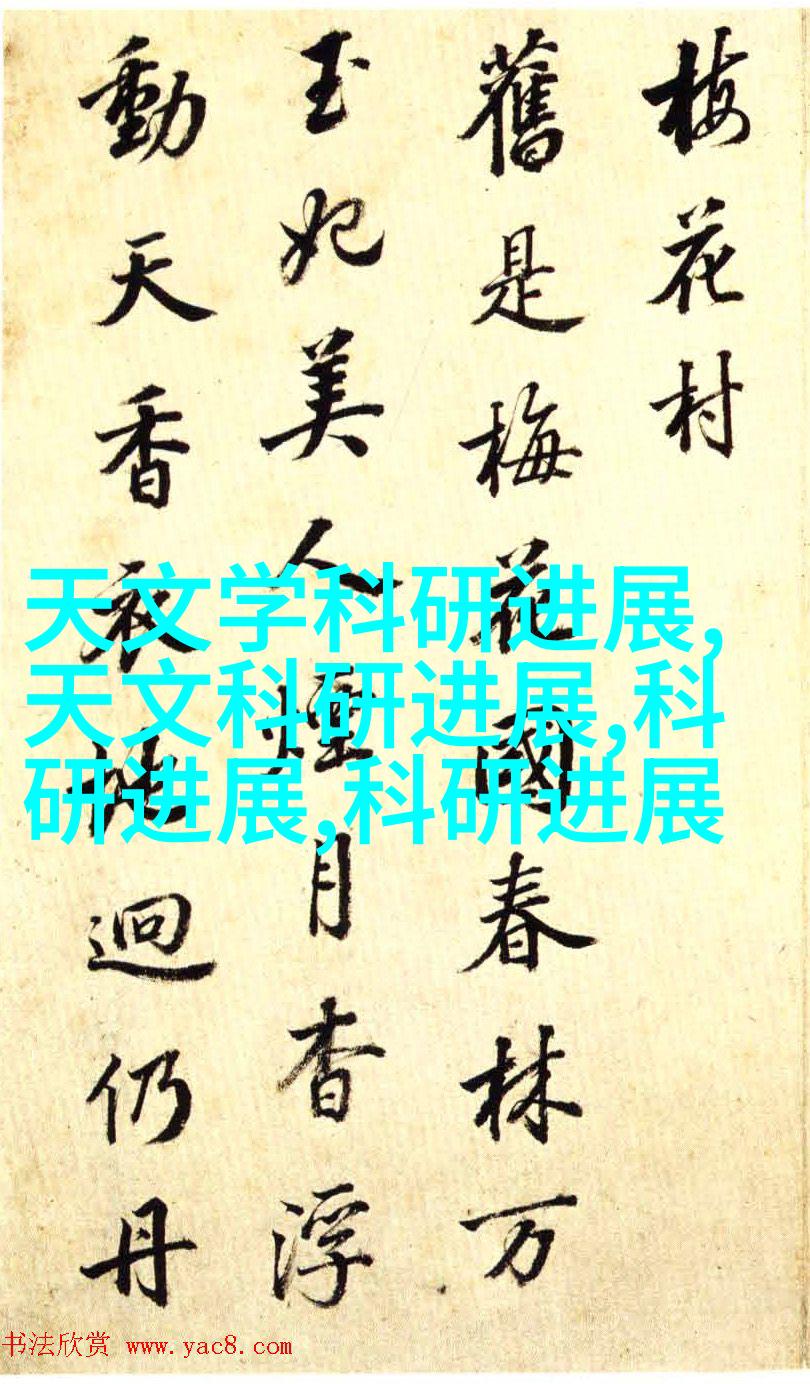 梅花村
舊是梅花國春林万
玉妃美人煙月杳浮
動天香衣袂迴仍丹
天文学科研进展,
天文科研进展,科
研进展,科研进展
书法欣赏 www.yac8.com